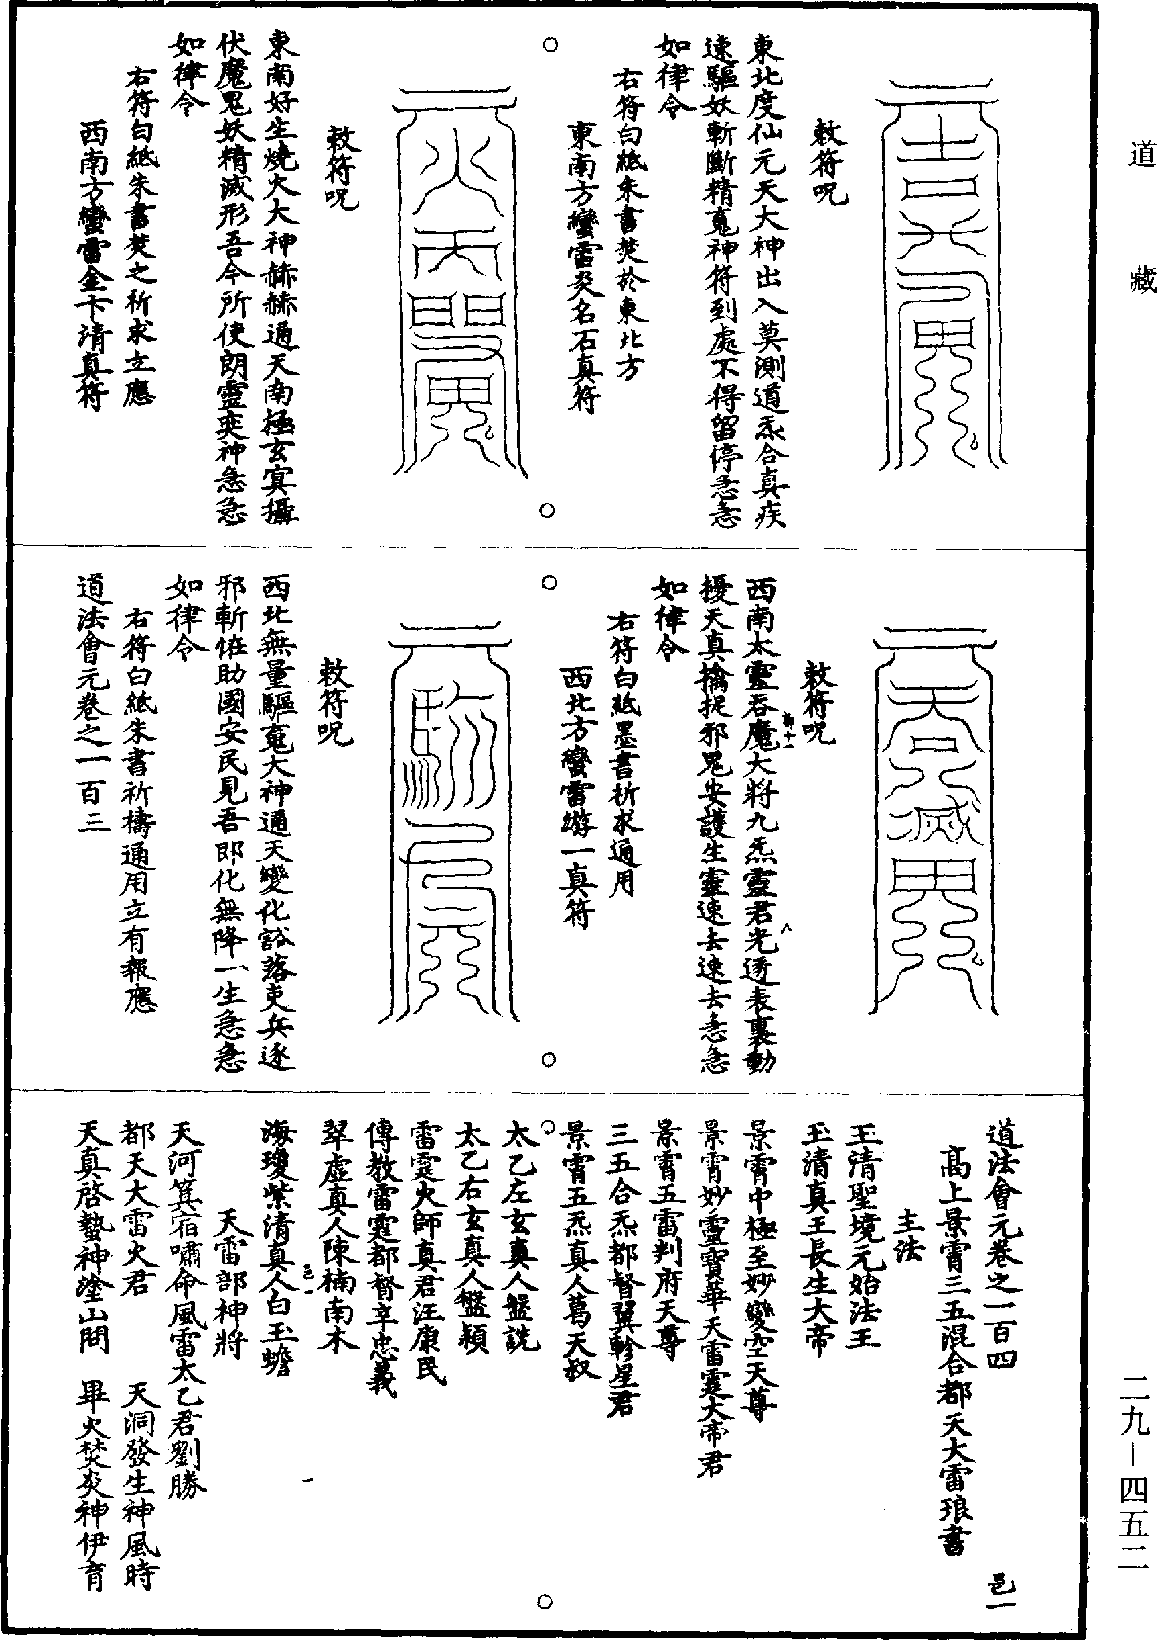 道藏
敕符呪
東北度仙元天大神出入莫測道炁合真疾
速驅妖斬斷精䰟神符到處不得留停急急
如律令
右符白紙朱書焚於東北方
東南方蠻雷炎名石真符
敕符呪
東南好生燒火大神赫赫通天南極玄冥攝
伏魔鬼妖精滅形吾今所使朗靈奕神急急
如律令
右符白紙朱書焚之祈求立應
西南方蠻雷金卞清真符
敕符呪
西南太靈吞魔大將九炁靈君光透表裏動
擾天真擒捉邪鬼安護生靈速去速去急急
如律令
右符白紙墨書祈求通用
西北方蠻雷游一真符
敕符呪
西北無量驅䰟大神通天變化谿落吏兵逐
邪斬怪助國安民見吾即化無降一生急急
如律令
右符白紙朱書祈禱通用立有報應
道法會元卷之一百三
道法會元卷之一百四 邑一
高上景霄三五混合都天大雷琅書
主法
玉清聖境元始法王
玉清真王長生大帝
景霄中極至妙變空天尊
景霄妙靈寶華天雷霆大帝君
景霄五雷判府天尊
三五合炁都督翼軫星君
景霄五炁真人葛天叔
太乙左玄真人盤詵
太乙右玄真人盤穎
雷霆火師真君汪康民
傳教雷霆都督辛忠義
翠虛真人陳楠南木
海瓊紫清真人白玉蟾
天雷部神將
天河箕宿嘯命風雷太乙君劉勝
都天大雷火君 天洞發生神風時
天真啓蟄神塗山閂 畢火焚炎神伊育
二九—四五二